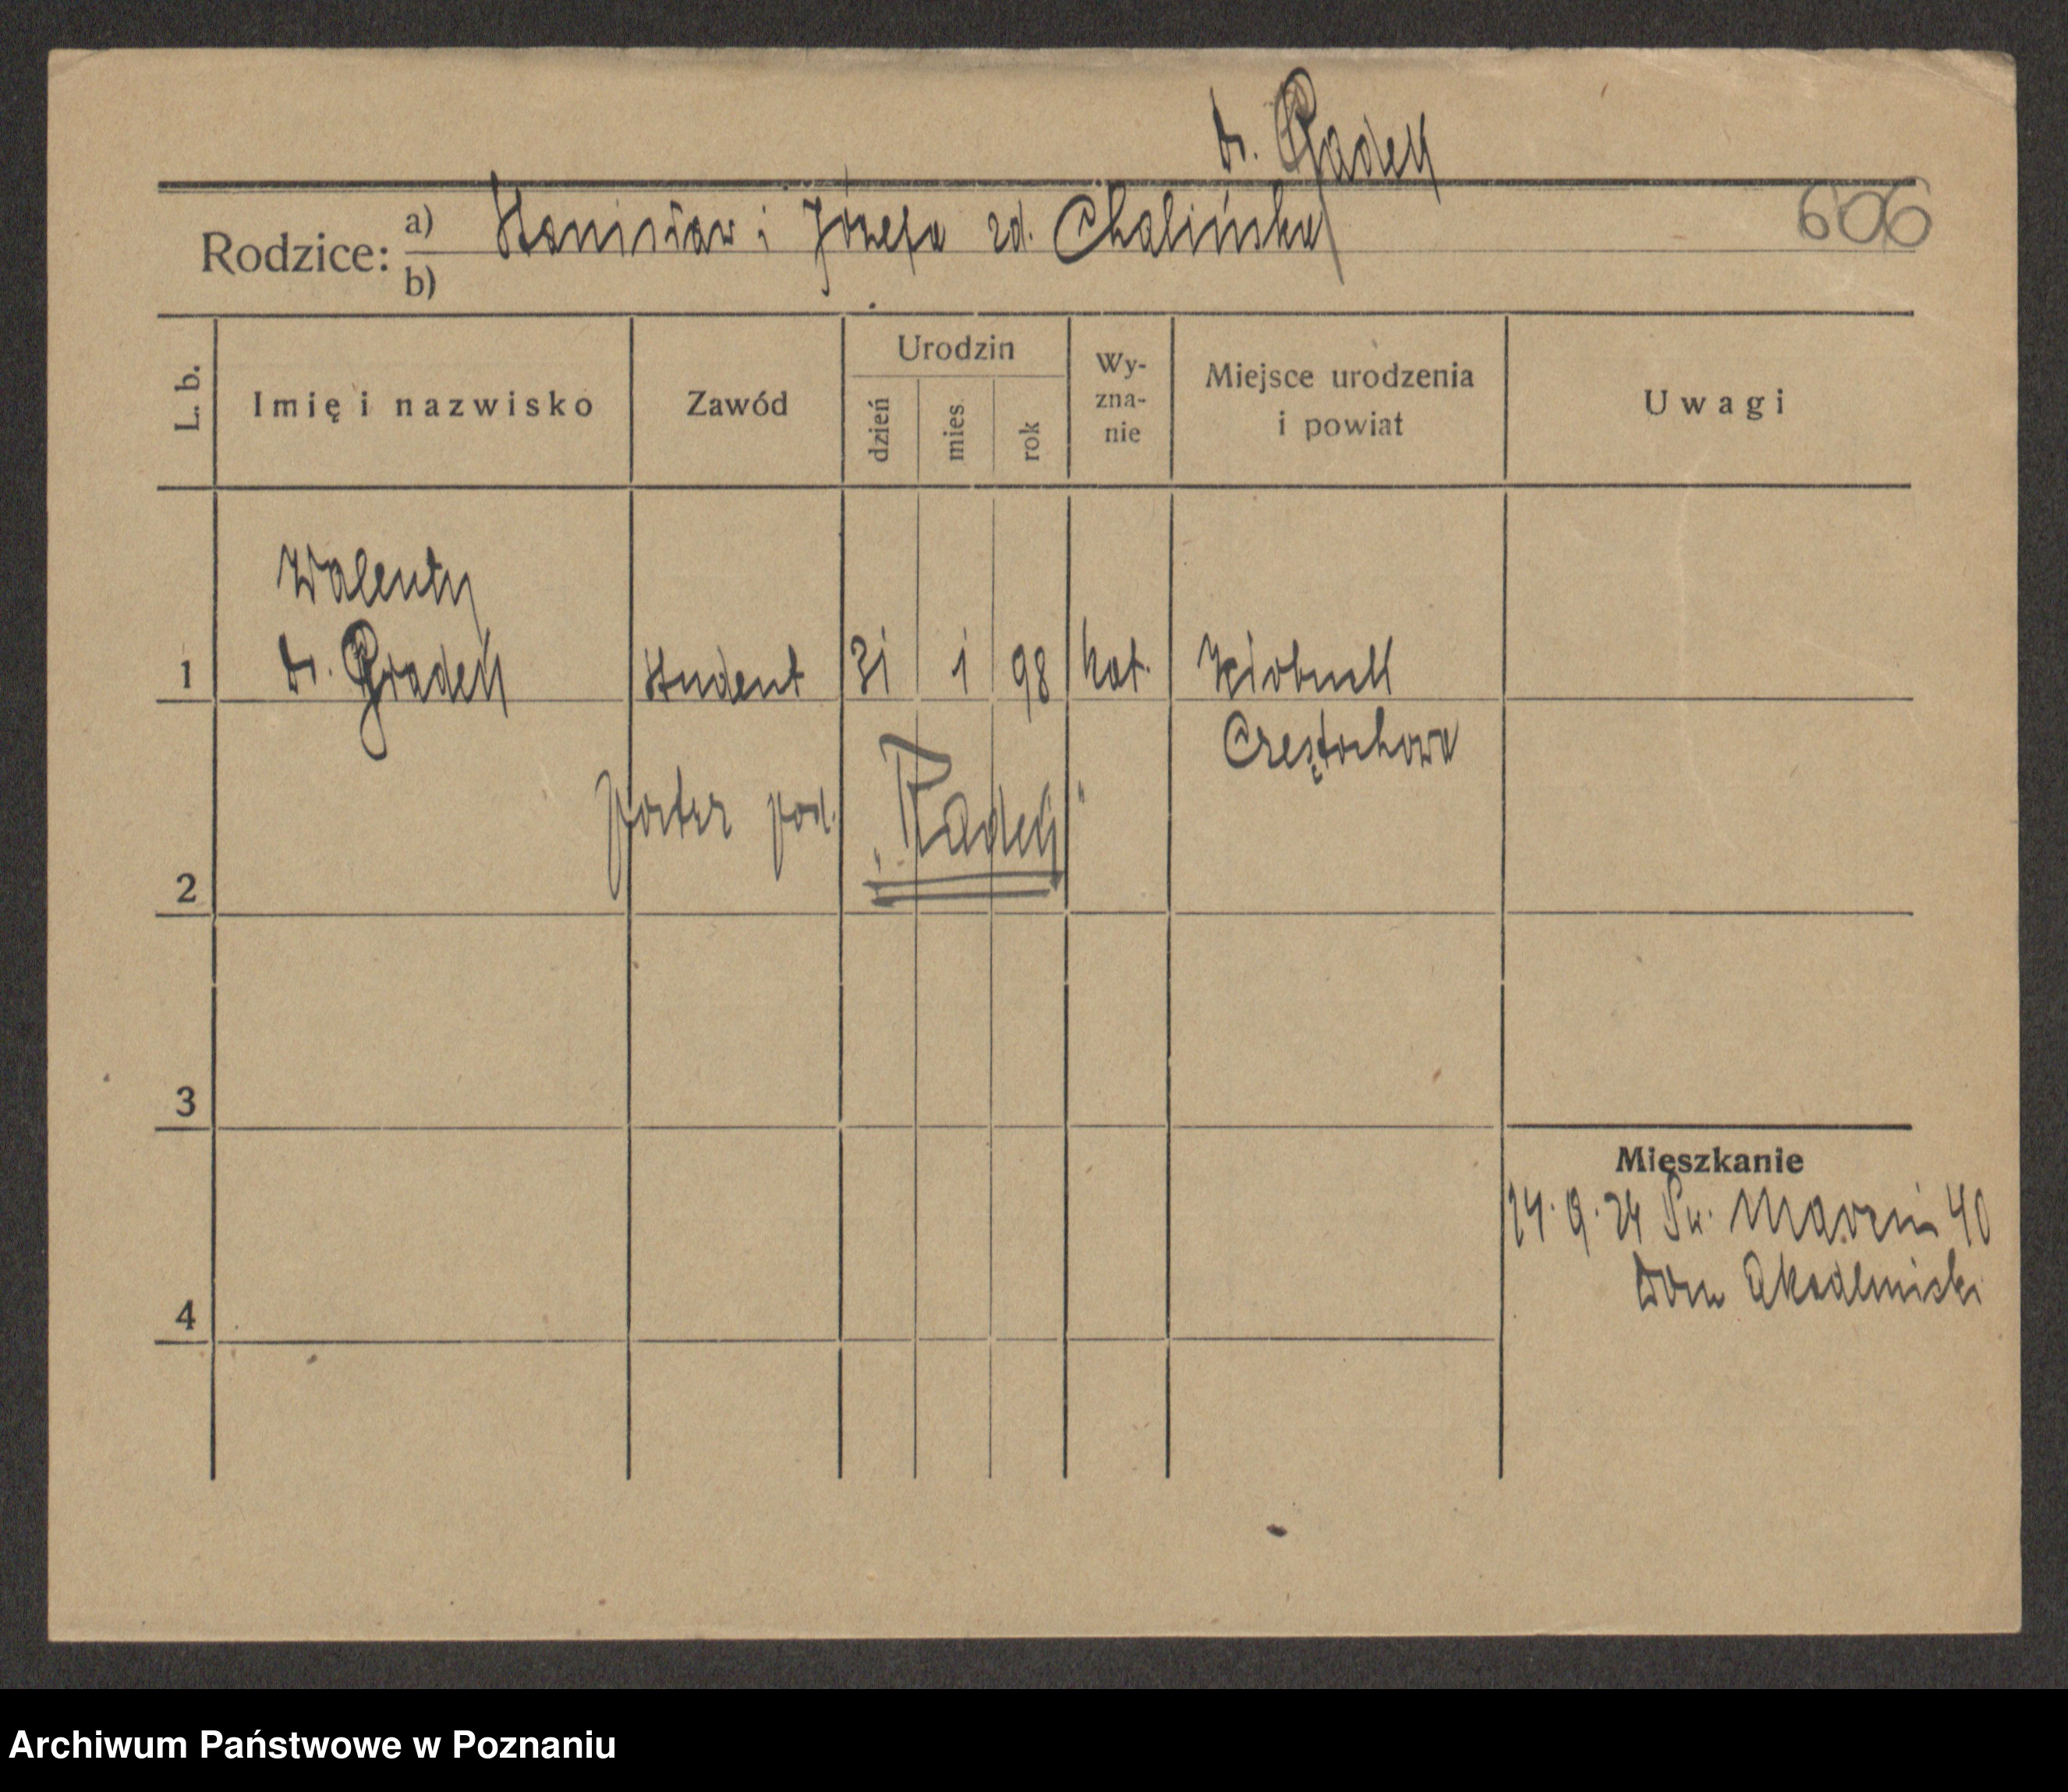 dr. Radek
Rodzice: a) Stanisław i Józefa zd. Chalińska 606
b)
L. b. Imię i nazwisko Zawód Urodzin dzień mies. rok Wyznanie Miejsce urodzenia i powiat Uwagi
Walenty
1 dr. Radek student 31 1 98 kat. Kłobuck
Częstochowa
patrz pod. „Radek"
2
3
Mieszkanie
24. 9. 24 Św. Marcin 40
Dom Akademicki
4
Archiwum Państwowe w Poznaniu